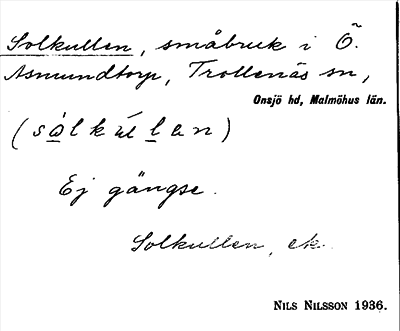 Solkullen, småbruk i Ö.
Asmundtorp, Trollenäs sn,
Onsjö hd, Malmöhus län.
(sålkúlen)
Ej gängse.
Solkullen, ek.
NILS NILSSON 1936.